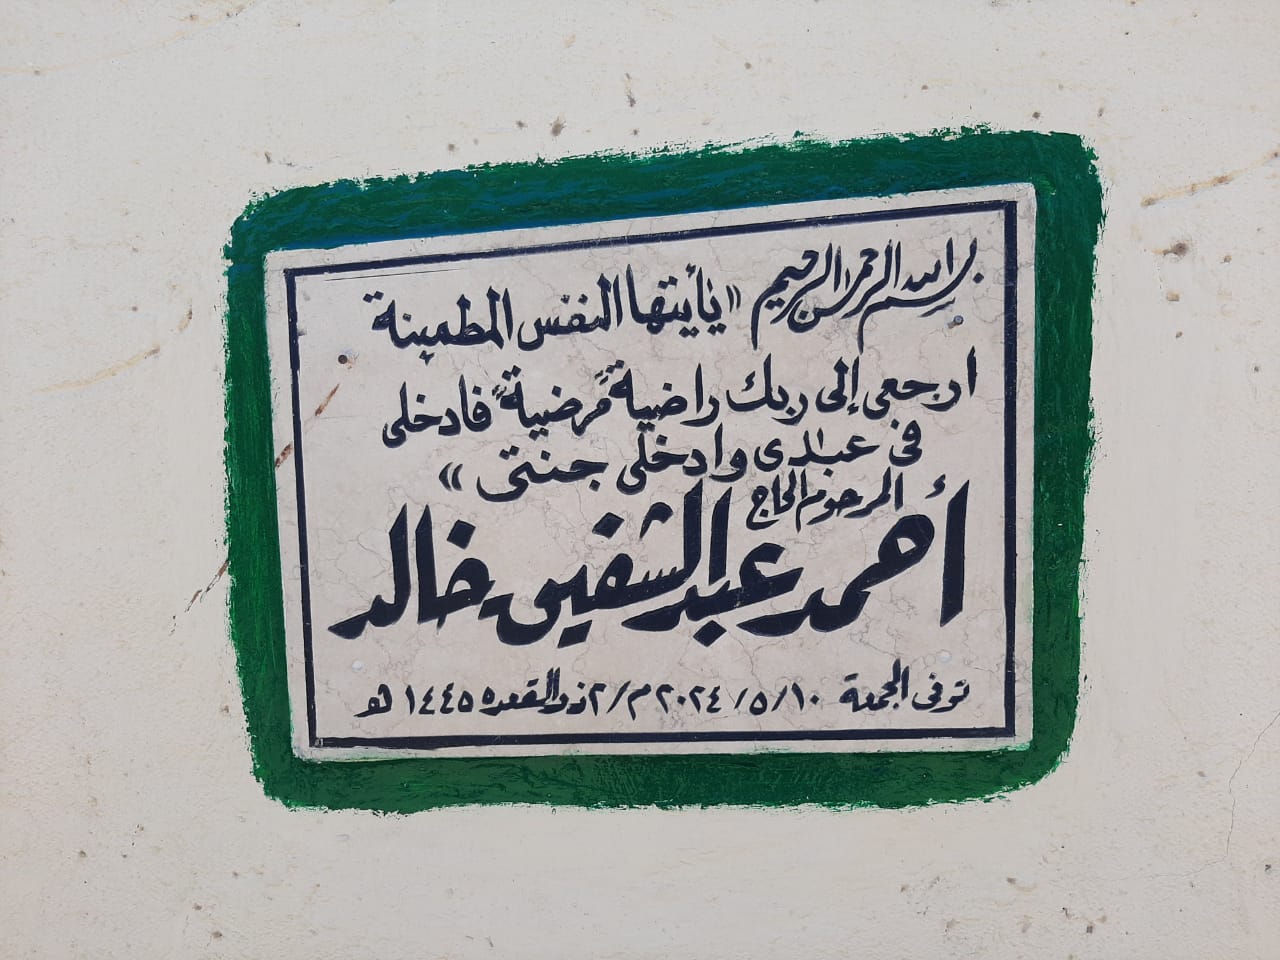 بسم الله الرحمن الرحيم « يأيتها النفس المطمينة
ارجعى إلى ربك راضيةً مرضيةً فادخلى
فى عبدى وادخلى جنتى »
المرحوم الحاج
أحمد عبد الشفيق خالد
توفى الجمعة ١٠/٥/٢٠٢٤م/٢ ذو القعده ١٤٤٥هـ